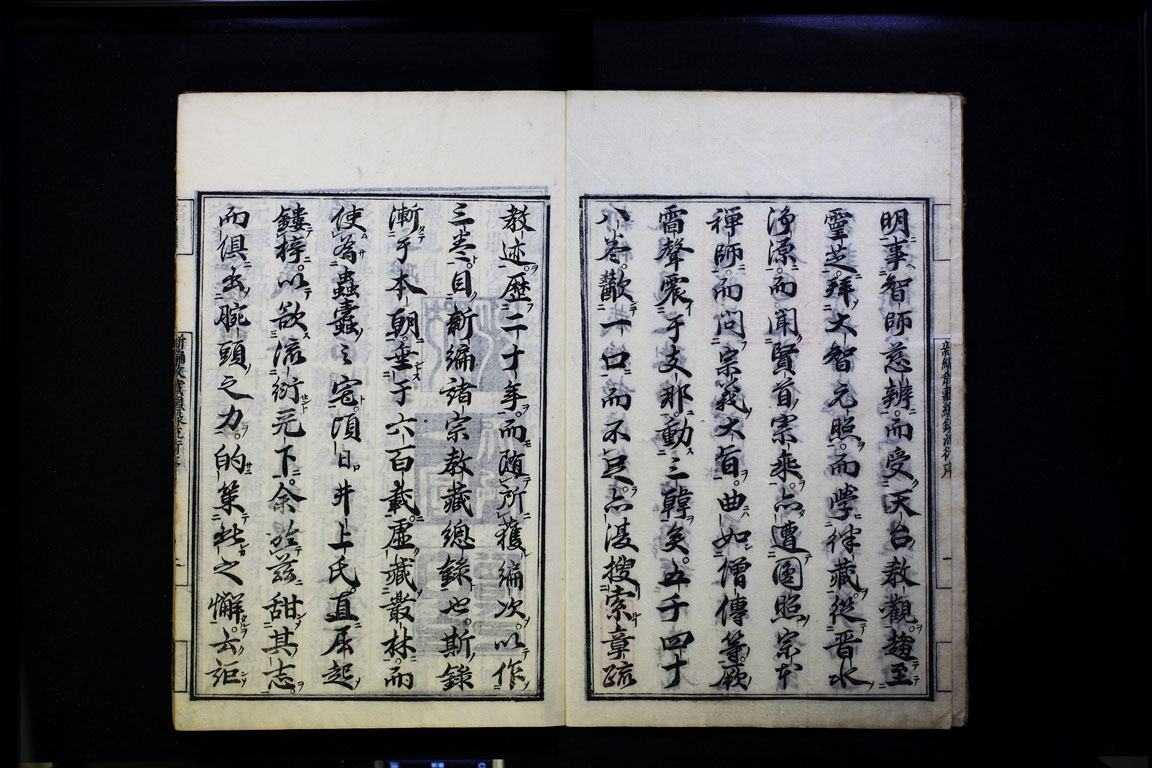 明事智師慈辨而受天台教觀趨至
靈芝拜大智元照而學律藏從晋水
淨源而聞賢首宗乘亦遭圓照宗本
禪師而問宗義大旨曲如僧傳等厥
雷聲震于支那動三韓矣五千四十
八卷歡一口而不足亦復搜索章疏
教迹歷二十年而随所獲編次以作
三卷目新編諸宗教藏總錄也斯錄
漸于本朝垂于六百載虛藏叢林而
使為蟲蠹之宅頃日井上氏直屈起
鏤梓以欲流衍元下余於茲甜其志
而俱出腕頭之力的菓些之懈云詎